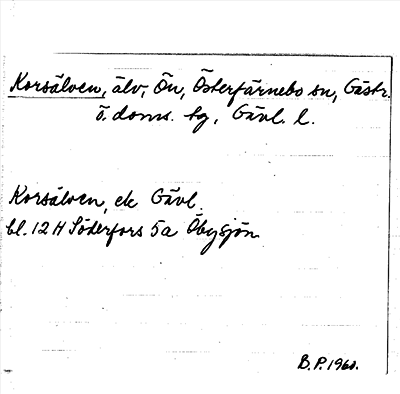 Korsälven, älv, Ön, Österfärnebo sn, Gästr.
ö. doms. tg, Gävl. l.
Korsälven, ek Gävl.
bl. 12 H Söderfors 5a Öbysjön
B.P. 1960.